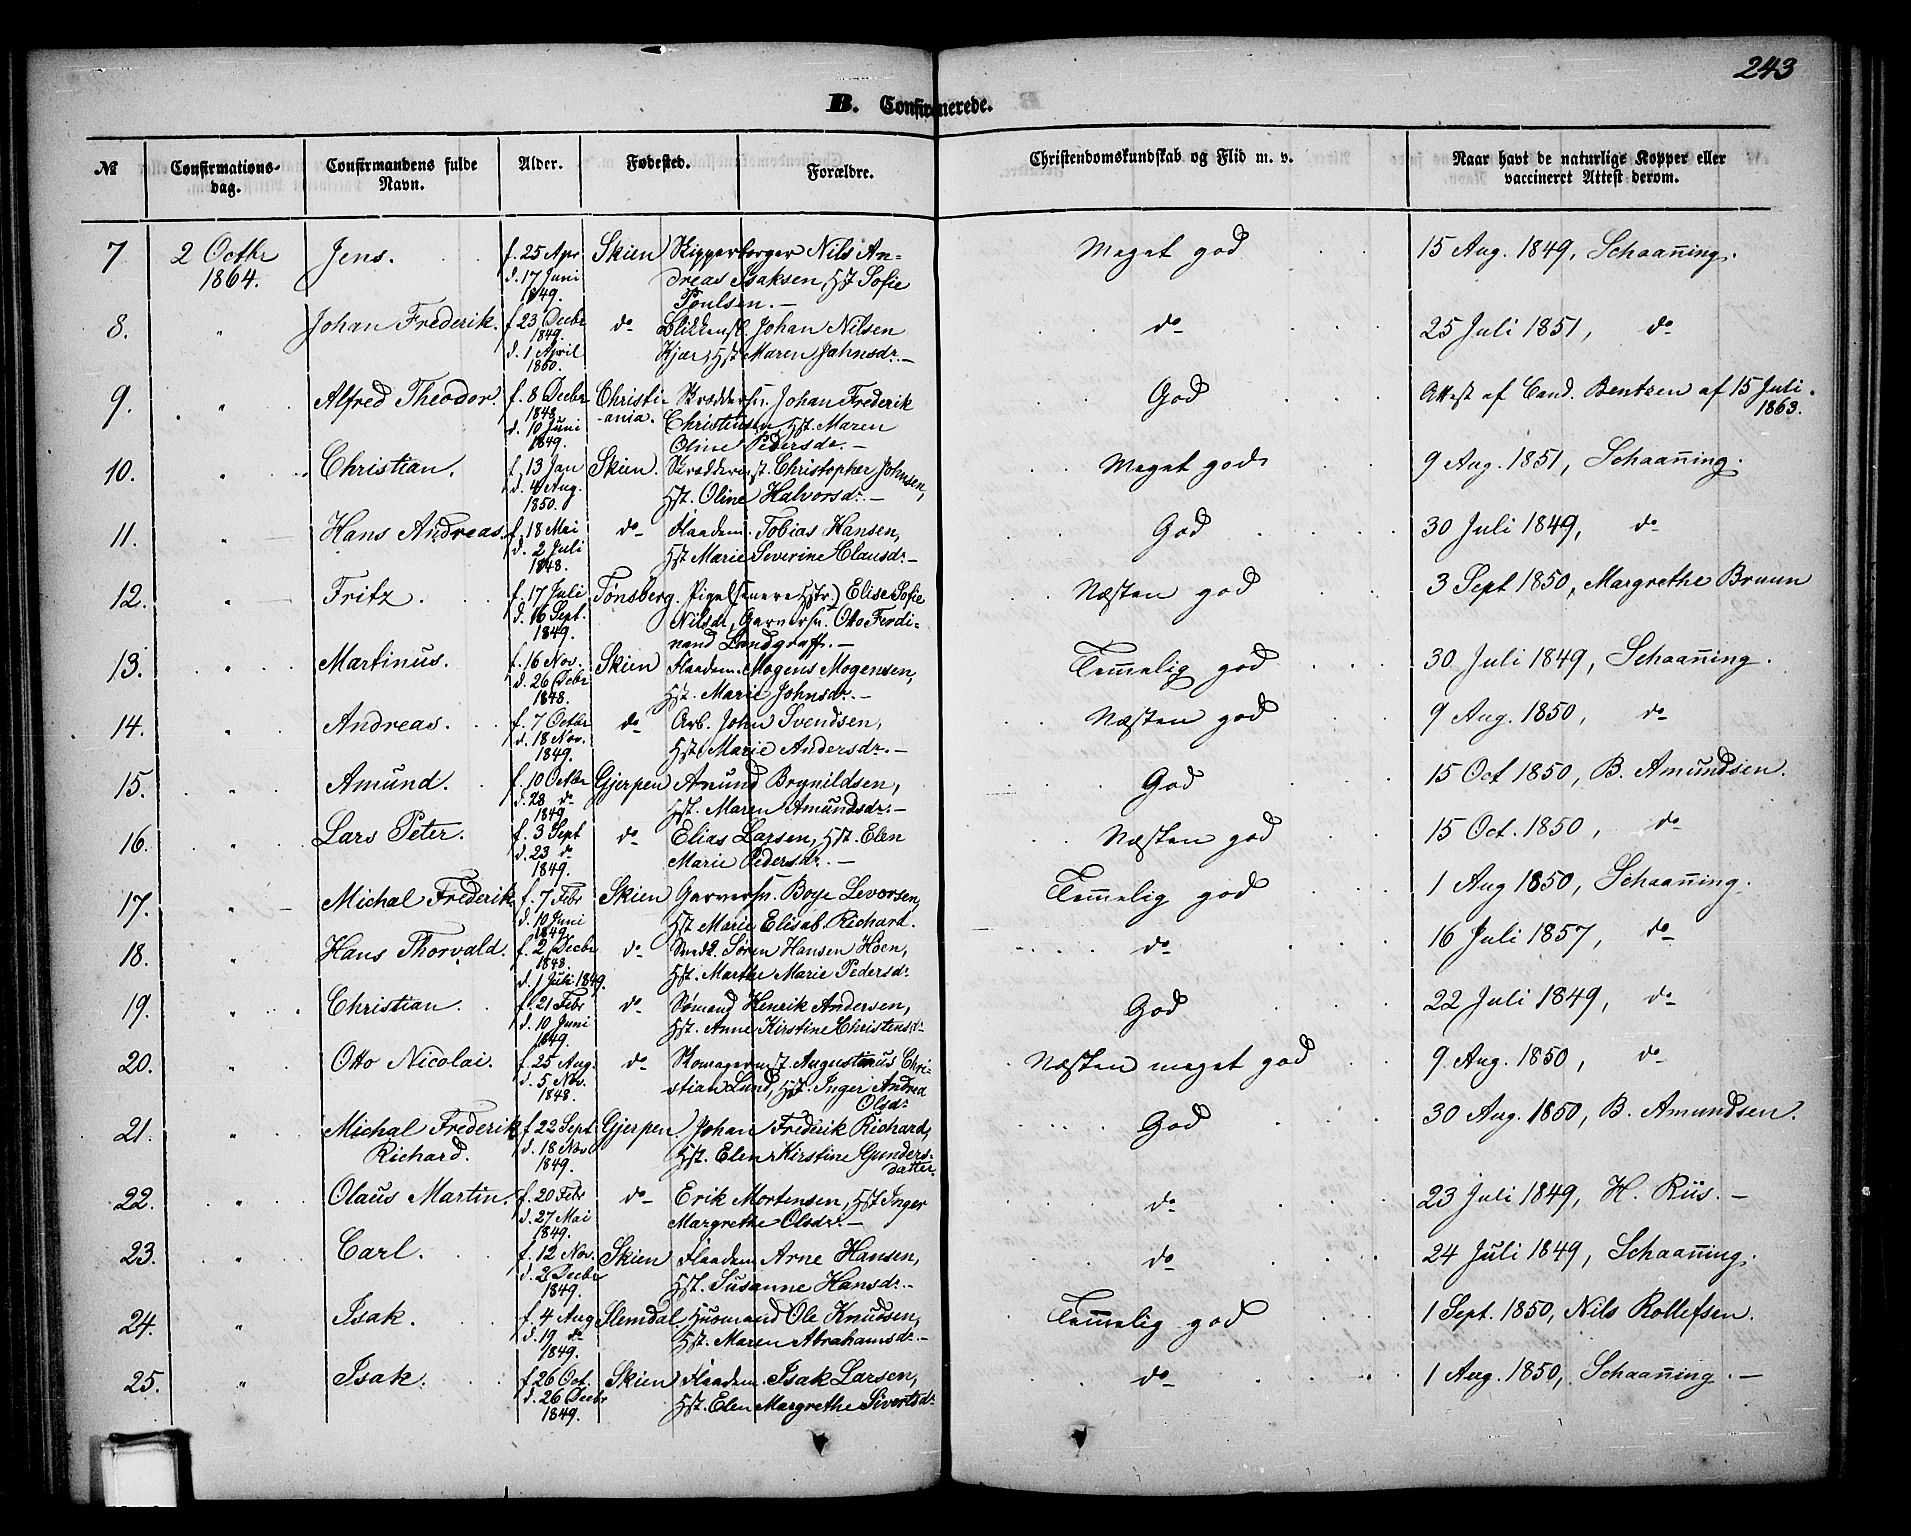 243
B. Confirmerede.
№ Confirmations-dag. Confirmandens fulde Navn. Alder. Fødested. Forældre. Christendomskundskab og Flid m. v. Naar havt de naturlige Kopper eller vaccineret Attest derom.
7 2 Octbr Jens. f. 25 Apr Skien Skipperborger Nils An- Meget god 15 Aug. 1849, Schaan̄ing.
1864. d. 17 Juni dreas Isaksen, Hst Sofie
1849. Poulsen. —
8. " Johan Frederik. f 23 Decbr do Blikkensl. Johan Nilsen do 25 Juli 1851, do
1849 d. 1 April Kjær, Hst Maren Jahnsdr. —
1850.
9. " Alfred Theodor. f. 8 Decbr Christi- Skræddersv. Johan Frederik God Attest af Cand. Bentzen af 15 Juli
1848 d. 10 Juni -ania. Christensen, Hst. Maren 1863.
1849. Oline Pedersdr. —
10. " Christian. f. 13 Jan Skien. Skrædderm st. Christopher Johnsen, Meget god 9 Aug. 1851, Schaan̄ing.
d. 4 Aug. Hst. Oline Halvorsdr. —
1850.
11. " Hans Andreas. f. 18 Mai do Flaadem. Tobias Hansen, God 30 Juli 1849, do
d. 2 Juli Hst Marie Severine Clausdr. —
1848.
12. " Fritz. f. 17 Juli Tønsberg. Pige (senere Hstr.) Elise Sofie Næsten god 3 Sept 1850, Margrethe Bruun
d. 16 Sept. Nilsdr, Garversv. Otto Ferdi-
1849. nand Landgraff. —
13. " Martinus. f. 16 Nov. Skien Flaadem. Mogens Mogensen, Tem̄elig god 30 Juli 1849, Schaan̄ing.
d. 26 Decbr Hst. Marie Johnsdr. —
1848.
14. " Andreas. f. 7 Octbr do Arb. John Svendsen, Næsten god 9 Aug. 1850, do
d. 18 Nov. Hst. Marie Andersdr. —
1849.
15. " Amund. f. 10 Octbr Gjerpen Amund Brynildsen, God 15 Oct 1850, B. Amundsen.
d. 28 do Hst. Maren Amundsdr. —
1849
16. " Lars Peter. f. 3 Sept do Elias Larsen, Hst. Elen Næsten god 15 Oct. 1850, do
d. 23 do Marie Pedersdr. —
1849.
17. " Michal Frederik f. 7 Febr Skien Garversv. Boye Levorsen, Tem̄elig god 1 Aug 1850, Schaan̄ing.
d. 10 Juni Hst Marie Elisab. Richard.
1849.
18. " Hans Thorvald. f. 2 Decbr do Søren Hansen Hoen, do 16 Juli 1857, do
1848. d. 1 Juli 1849. Hst. Marthe Marie Pedersdr.
19. " Christian. f. 21 Febr do Sømand Henrik Andersen, God 22 Juli 1849, do
d. 10 Juni Hst. Anne Kirstine Christensdr
1849.
20. " Otto Nicolai. f. 25 Aug. do Skomagerm st. Augustinus Chri- Næsten meget god 9 Aug. 1850, do
d. 5 Nov. stian Lund, Hst. Inger Andrea
1848. Olsdr
21. " Michal Frederik f 22 Sept Gjerpen. Johan Frederik Richard, God 30 Aug. 1850, B. Amundsen.
Richard. d. 18 Nov Hst. Elen Kirstine Gunders-
1849. datter.
22. " Olaus Martin. f. 20 Febr do Erik Mortensen, Hst Inger do 23 Juli 1849, H. Riis. —
d. 27 Mai Margrethe Olsdr. —
1849.
23. " Carl. f. 12 Nov. Skien Flaadem Arne Hansen, do 24 Juli 1849, Schaan̄ing.
d. 2 Decbr Hst. Susanne Hansdr. —
1849.
24. " Isak. f. 4 Aug Slemdal. Husmand Ole Knudsen, Tem̄elig god 1 Sept. 1850, Nils Rollefsen.
d. 19 do Hst. Maren Abrahamsdr. —
1849.
25. " Isak. f 26 Oct. Skien Flaadem. Isak Larsen, do 1 Aug. 1850, Schaan̄ing. —
d. 26 Decbr Hst. Elen Margrethe Sivertsdr.
1849.